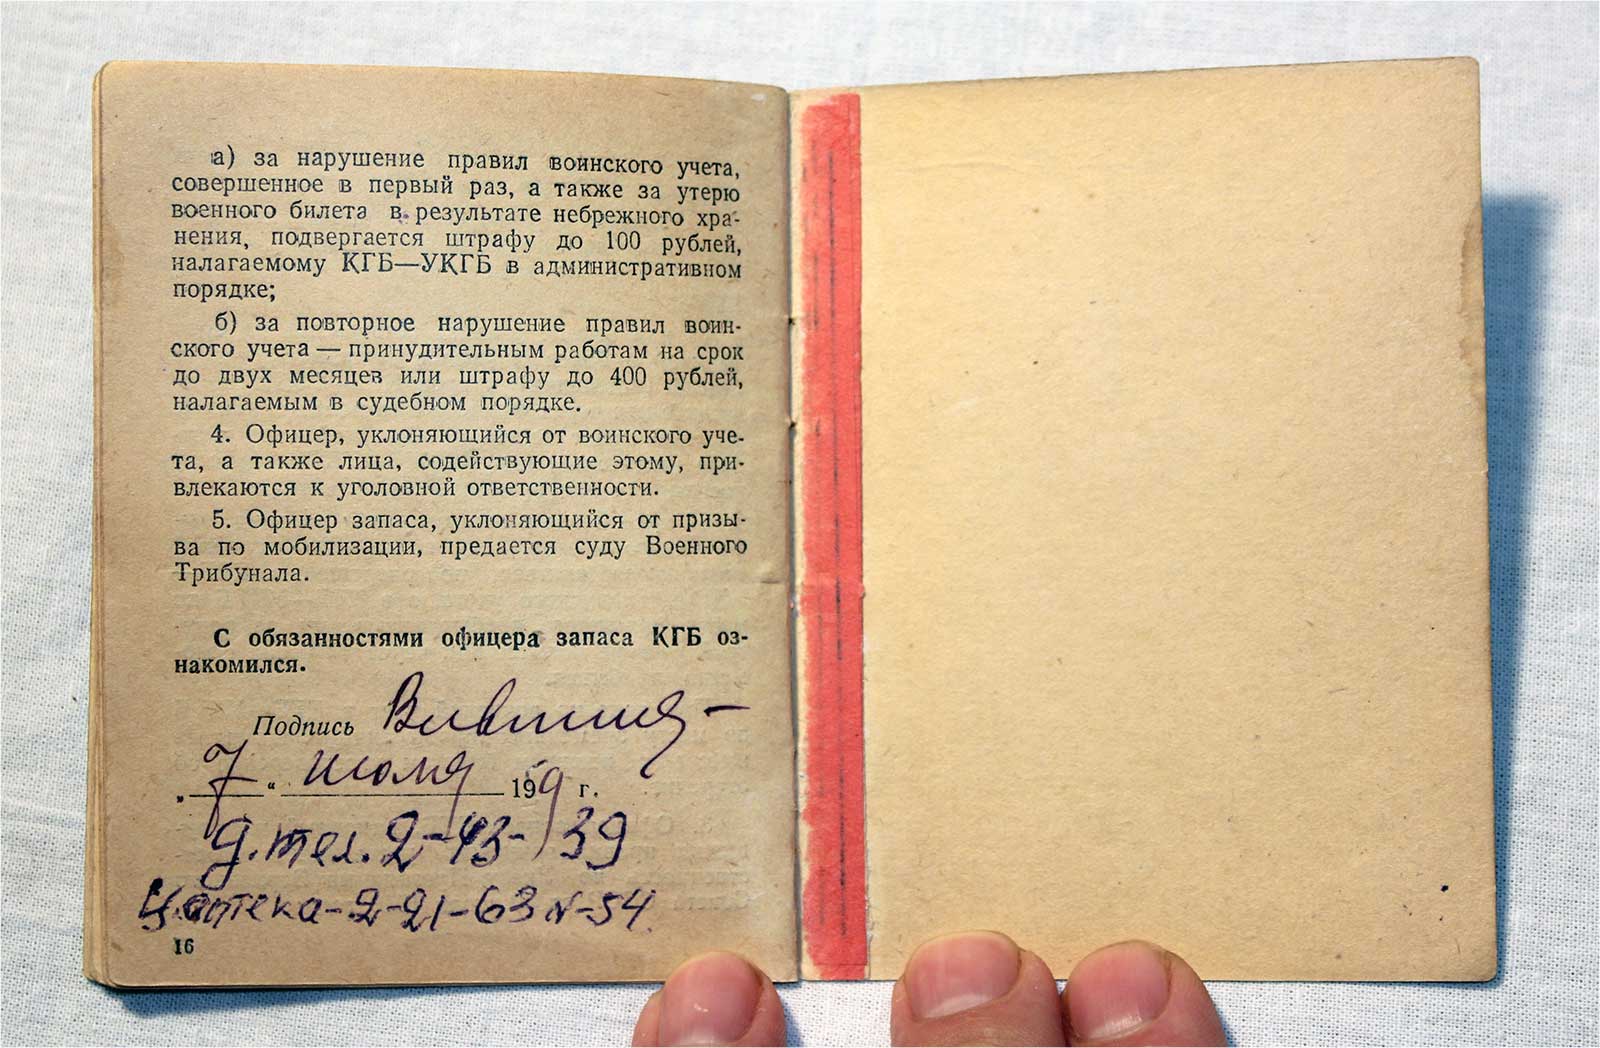 а) за нарушение правил воинского учета,
совершенное в первый раз, а также за утерю
военного билета в результате небрежного хра-
нения, подвергается штрафу до 100 рублей,
налагаемому КГБ—УКГБ в административном
порядке;
б) за повторное нарушение правил воин-
ского учета — принудительным работам на срок
до двух месяцев или штрафу до 400 рублей,
налагаемым в судебном порядке.
4. Офицер, уклоняющийся от воинского уче-
та, а также лица, содействующие этому, при-
влекаются к уголовной ответственности.
5. Офицер запаса, уклоняющийся от призы-
ва по мобилизации, предается суду Военного
Трибунала.
С обязанностями офицера запаса КГБ оз-
накомился.
Подпись
„7“ июля 1959 г.
д. тел. 2-43-39
Ц. аптека-2-21-63 N-54
16